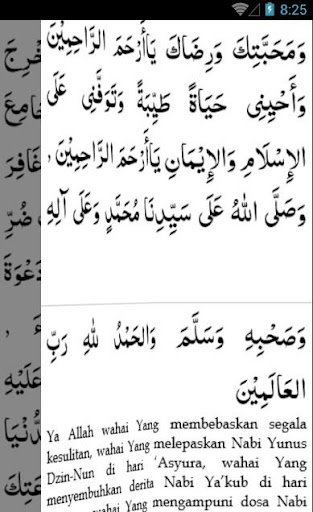 8:25
وَمَحَبَّتِكَ وَرِضَاكَ يَاأَرْحَمَ الرَّاحِمِيْنَ
وَأَحْيِنِى حَيَاةً طَيِّبَةً وَتَوَفَّنِى عَلَى
الإِسْلَامِ وَالإِيْمَانِ يَاأَرْحَمَ الرَّاحِمِيْنَ ,
وَصَلَّى اللهُ عَلَى سَيِّدِنَا مُحَمَّدٍ وَعَلَى آلِهِ
وَصَحْبِهِ وَسَلَّمَ وَالحَمْدُ للهِ رَبِّ
العَالَمِيْنَ
Ya Allah wahai Yang membebaskan segala
kesulitan, wahai Yang melepaskan Nabi Yunus
Dzin-Nun di hari ‘Asyura, wahai Yang
menyembuhkan derita Nabi Ya’kub di hari
wahai Yang mengampuni dosa Nabi